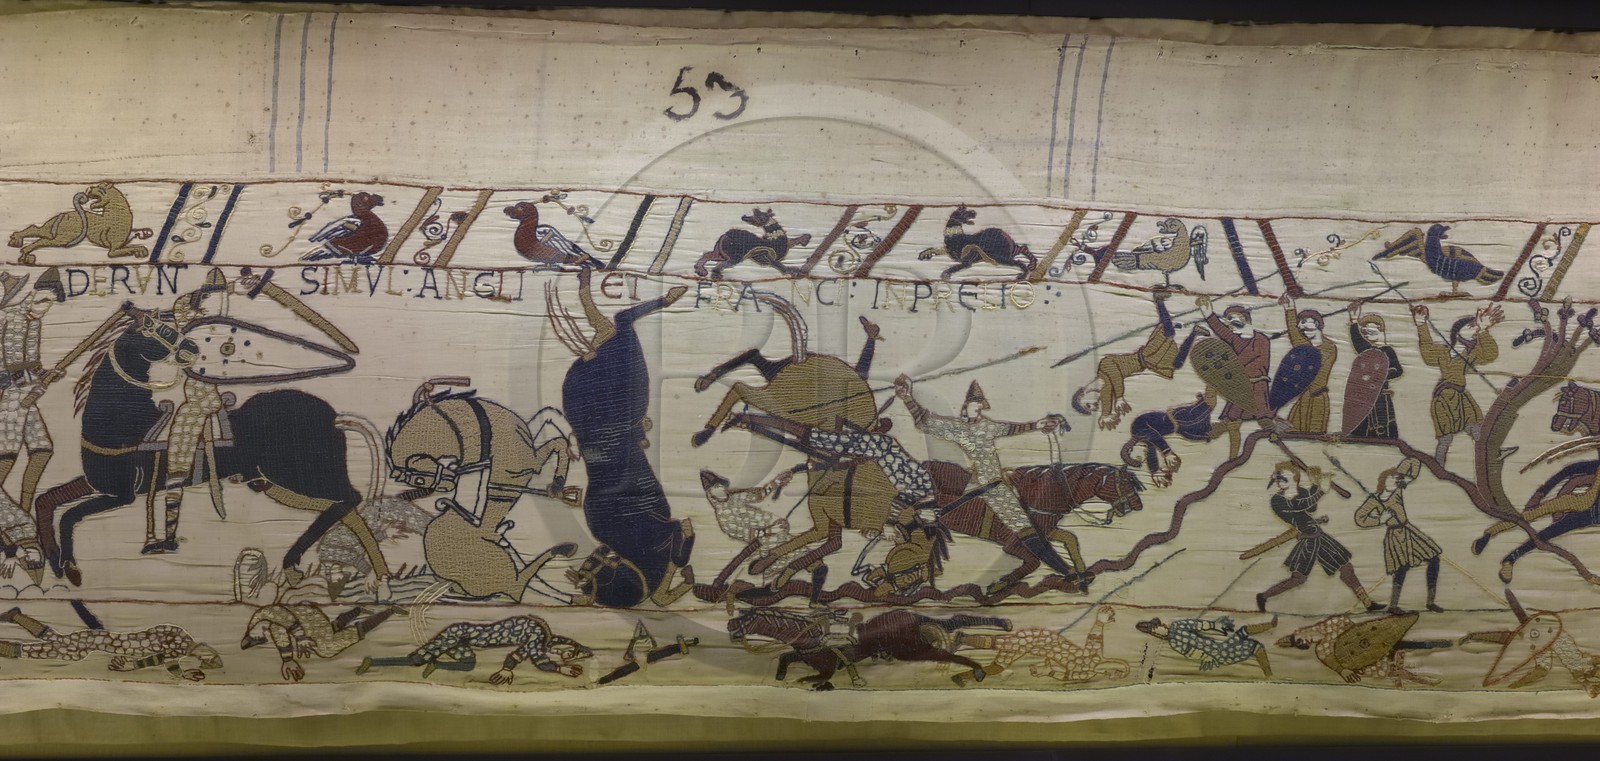 53
DERVNT SIMVL: ANGLI ET FRANCI: IN PRELIO: